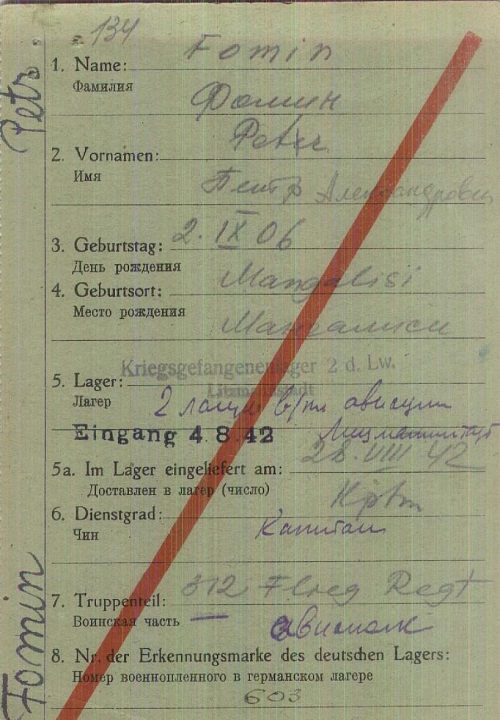 134
1. Name: Fomin
Фамилия
Фомин
Peter
2. Vornamen:
Имя
Петр Александрович
3. Geburtstag: 2. IX 06
День рождения
4. Geburtsort: Mangalisi
Место рождения
Мангалиси
Kriegsgefangenenlager 2 d. Lw.
Litzmannstadt
5. Lager:
Лагер
2 лагерь в/пл авиации
Лицманштадт
Eingang 4.8.42
5a. Im Lager eingeliefert am: 28.VIII 42
Доставлен в лагер (число)
Hptm
6. Dienstgrad:
Чин
Капитан
7. Truppenteil: 312 Flieg Regt
Воинская часть — авиаполк
8. Nr. der Erkennungsmarke des deutschen Lagers:
Номер военнопленного в германском лагере
603
Petr.
Fomin